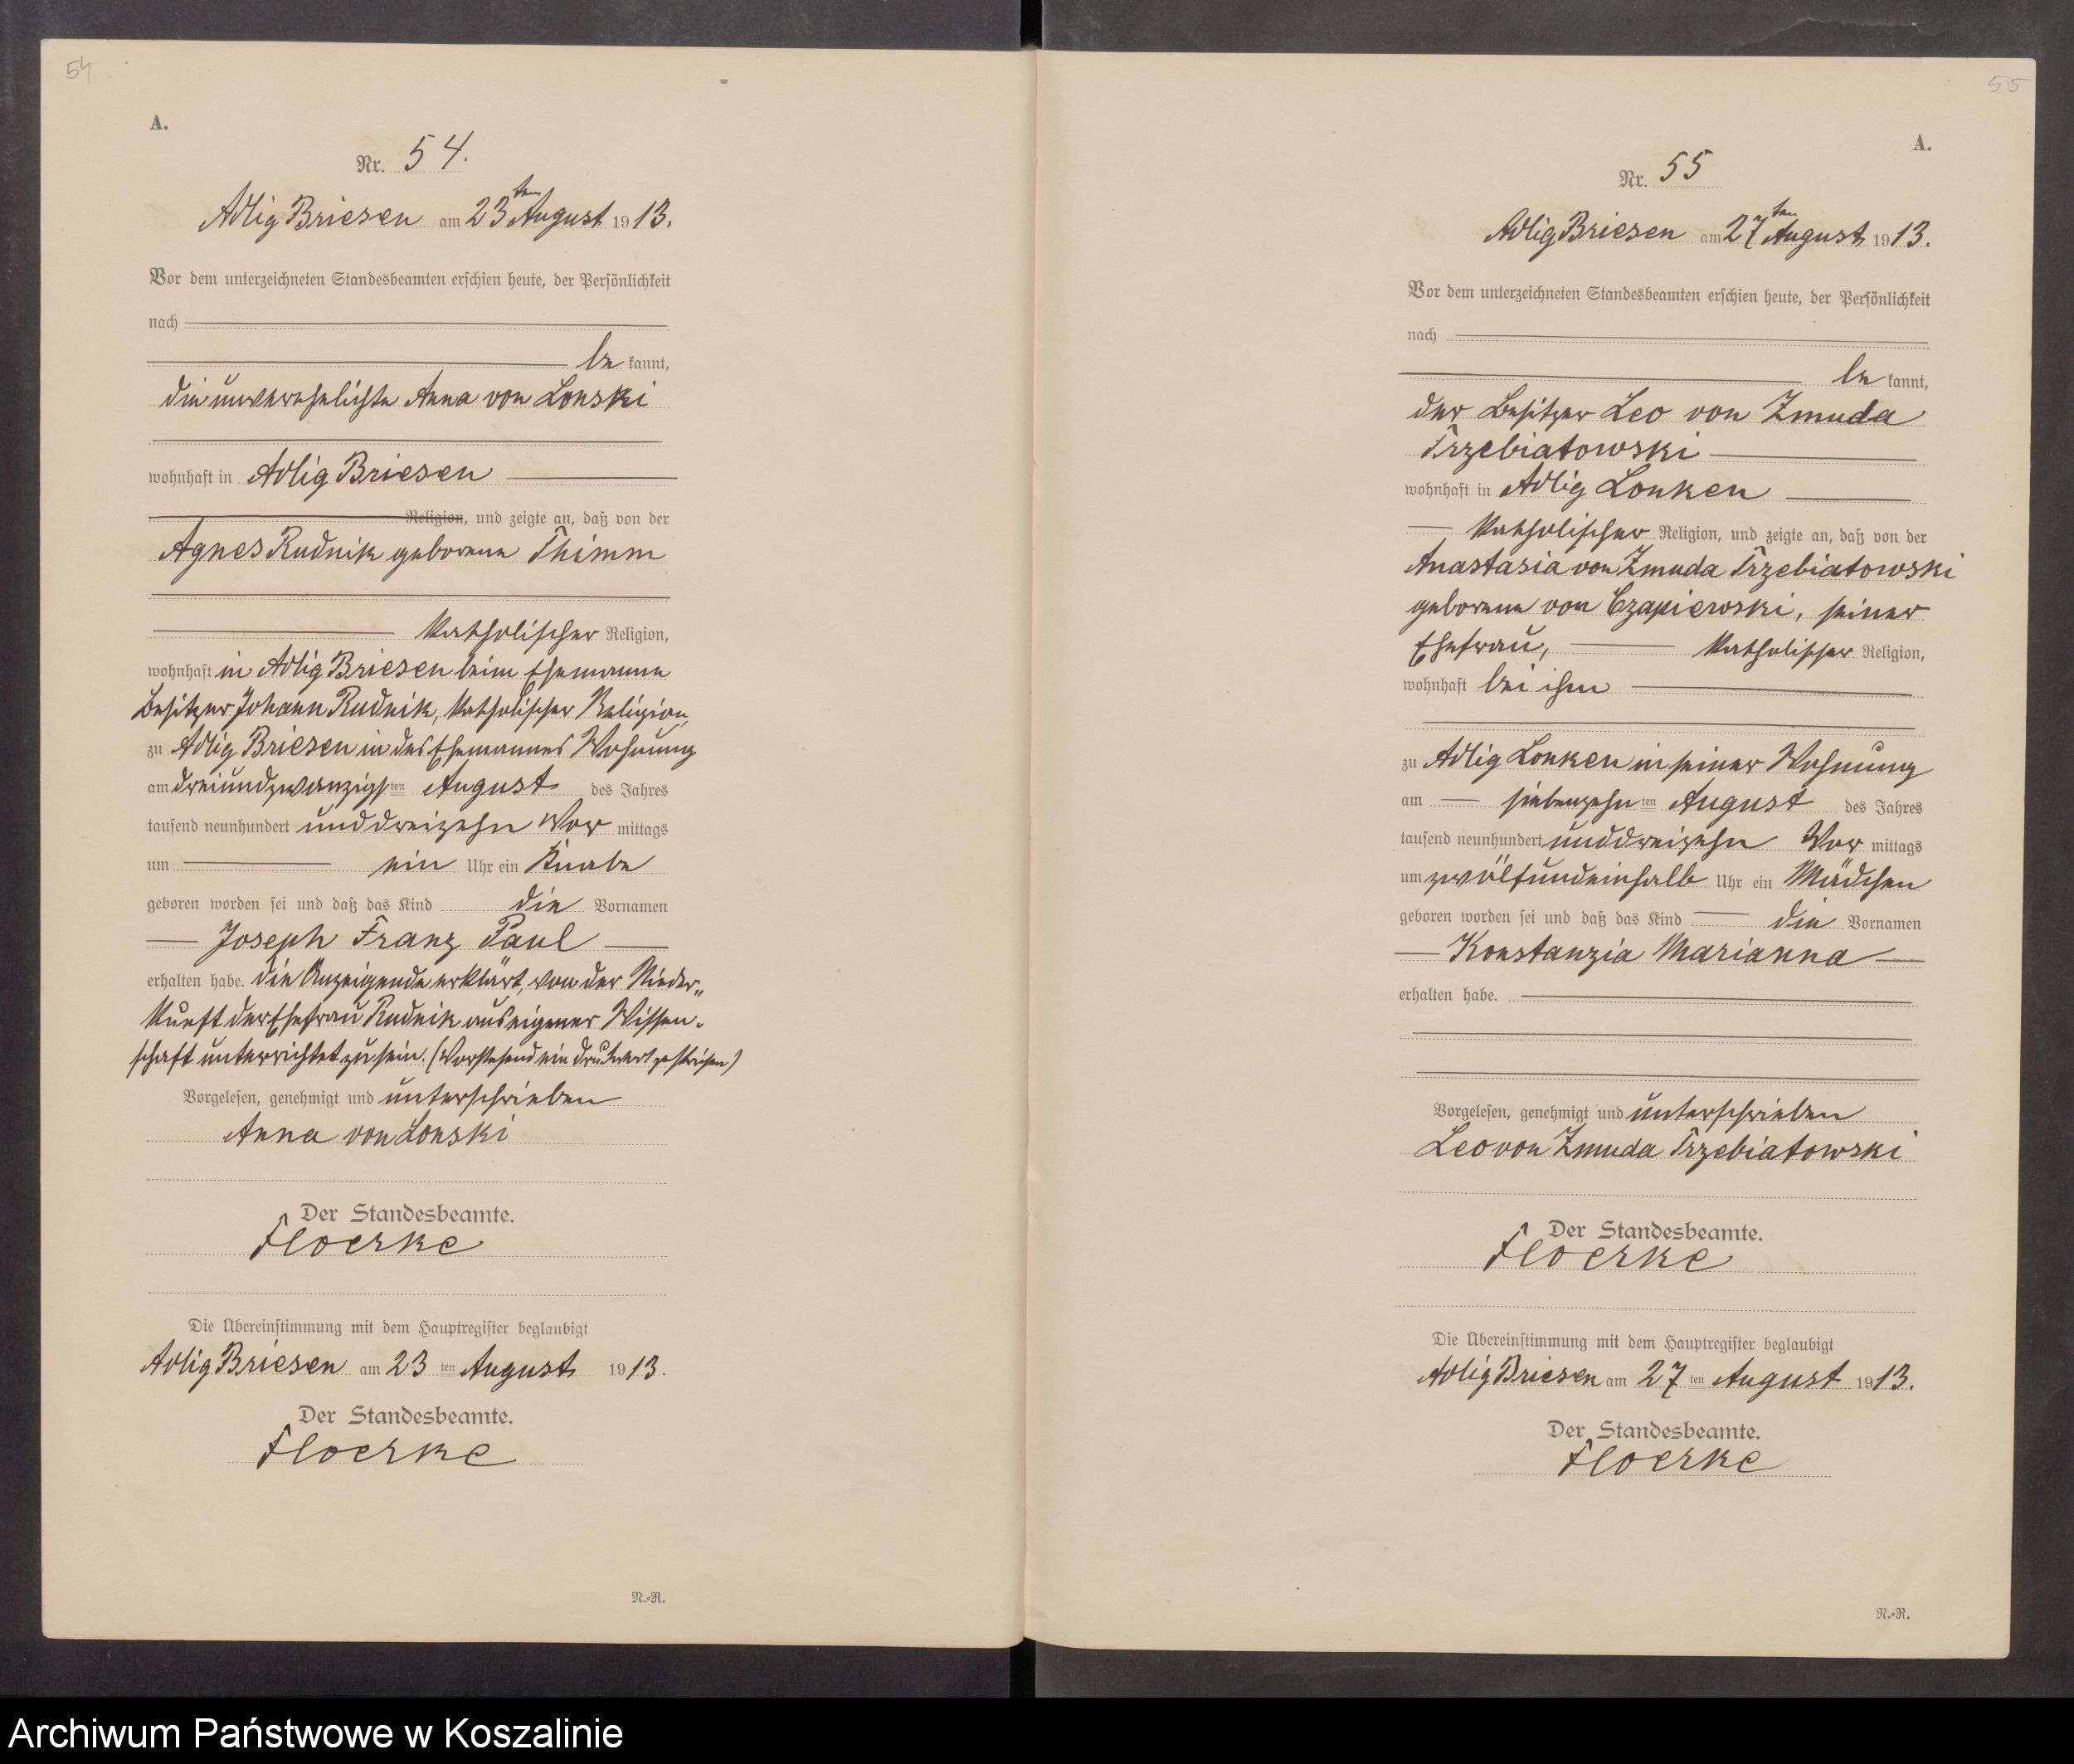 54
A.
Nr. 54.
Adlig Briesen am 23ten August 1913.
Vor dem unterzeichneten Standesbeamten erschien heute, der Persönlichkeit
nach
be kannt,
die unverehelichte Anna von Lonski
wohnhaft in Adlig Briesen
Religion, und zeigte an, daß von der
Agnes Rudnik geborene Thimm
katholischer Religion,
wohnhaft in Adlig Briesen beim Ehemanne
Besitzer Johann Rudnik, katholischer Religion,
zu Adlig Briesen in des Ehemannes Wohnung
am dreiundzwanzigsten August des Jahres
tausend neunhundert unddreizehn Vor mittags
um ein Uhr ein Knabe
geboren worden sei und daß das Kind die Vornamen
Joseph Franz Paul
erhalten habe. Die Anzeigende erklärt, von der Nieder„
kunft der Ehefrau Rudnik aus eigener Wissen„
schaft unterrichtet zu sein. (Vorstehend ein Druckwort gestrichen)
Vorgelesen, genehmigt und unterschrieben
Anna von Lonski
Der Standesbeamte.
Floerke
Die Übereinstimmung mit dem Hauptregister beglaubigt
Adlig Briesen am 23 ten August 1913.
Der Standesbeamte.
Floerke
N.-R.
55
A.
Nr. 55
Adlig Briesen am 27ten August 1913.
Vor dem unterzeichneten Standesbeamten erschien heute, der Persönlichkeit
nach
be kannt,
der Besitzer Leo von Zmuda
Trzebiatowski
wohnhaft in Adlig Lonken
katholischer Religion, und zeigte an, daß von der
Anastasia von Zmuda Trzebiatowski
geborene von Czapiewski, seiner
Ehefrau, katholischer Religion,
wohnhaft bei ihm
zu Adlig Lonken in seiner Wohnung
am siebenzehnten August des Jahres
tausend neunhundert unddreizehn Vor mittags
um zwölfundeinhalb Uhr ein Mädchen
geboren worden sei und daß das Kind die Vornamen
Konstanzia Marianna
erhalten habe.
Vorgelesen, genehmigt und unterschrieben
Leo von Zmuda Trzebiatowski
Der Standesbeamte.
Floerke
Die Übereinstimmung mit dem Hauptregister beglaubigt
Adlig Briesen am 27 ten August 1913.
Der Standesbeamte.
Floerke
N.-R.
Archiwum Państwowe w Koszalinie